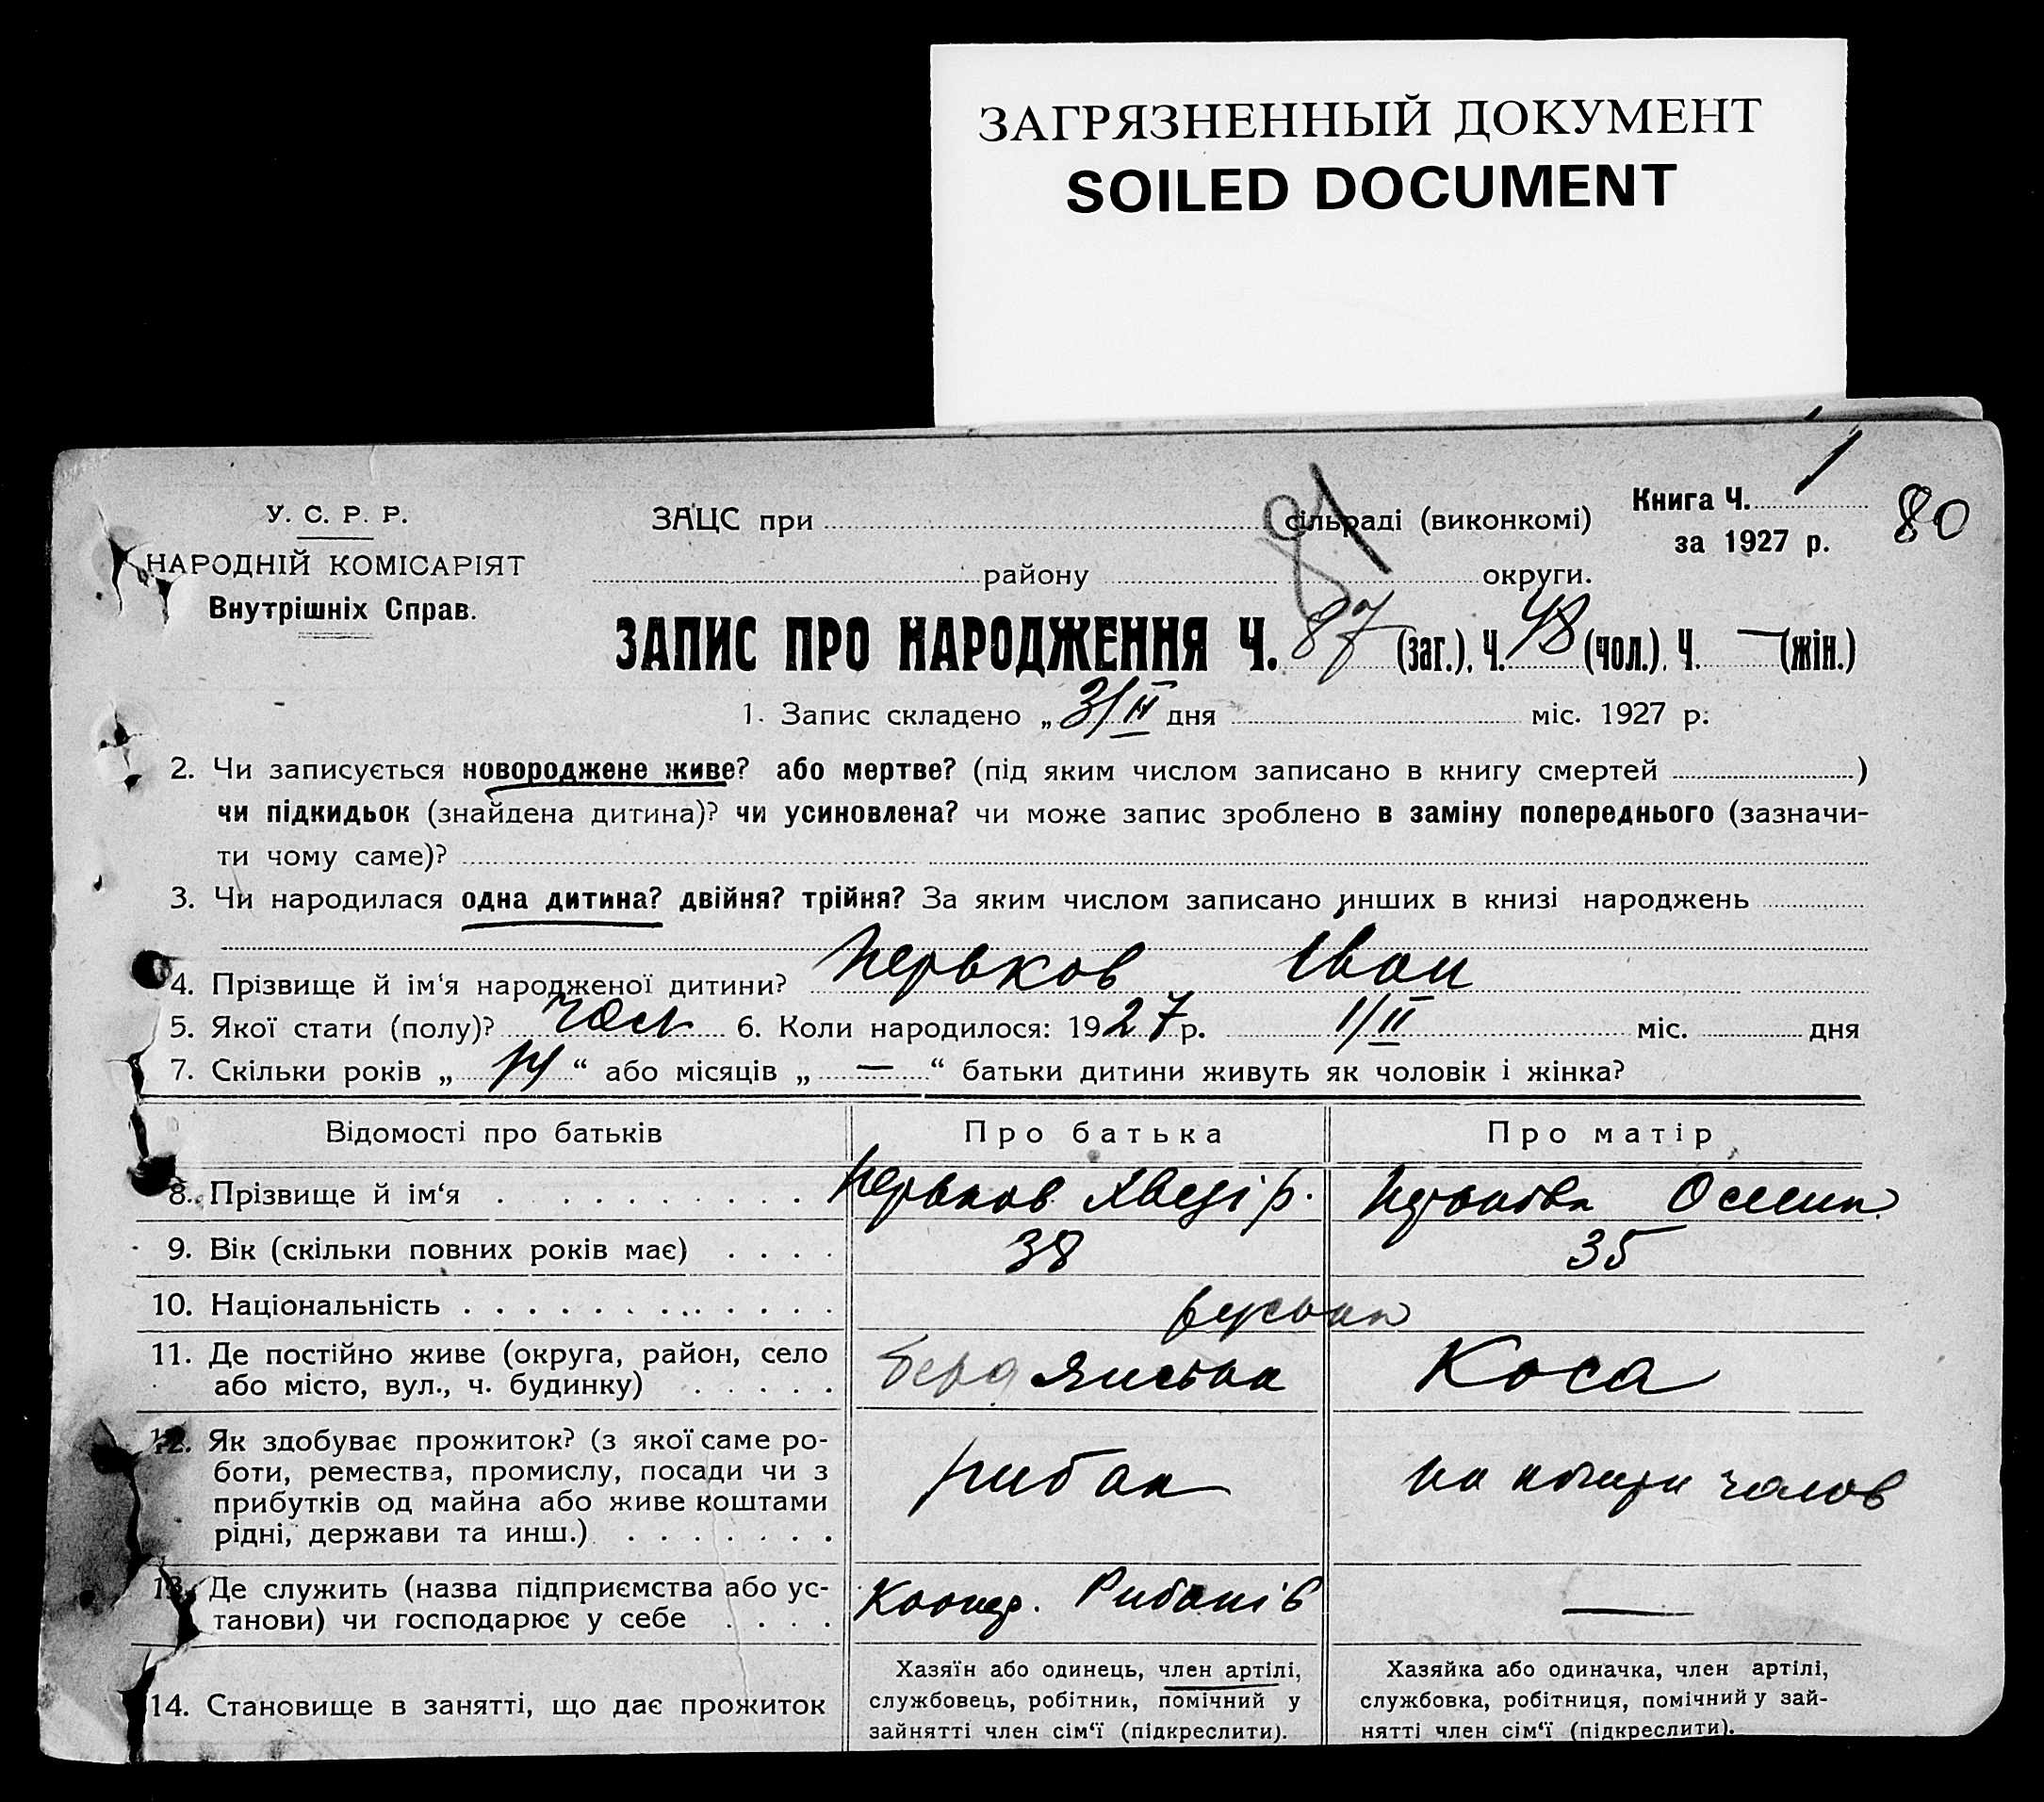 ЗАГРЯЗНЕННЫЙ ДОКУМЕНТ
SOILED DOCUMENT
У. С. Р. Р.
НАРОДНІЙ КОМІСАРІЯТ
Внутрішніх Справ.
ЗАЦС при сільраді (виконкомі)
району округи.
Книга Ч. 1
за 1927 р.
80
81
ЗАПИС ПРО НАРОДЖЕННЯ Ч. 87 (заг.), Ч. 48 (чол.), Ч. — (жін.)
1. Запис складено „ 3/II дня міс. 1927 р.
2. Чи записується новороджене живе? або мертве? (під яким числом записано в книгу смертей )
чи підкидьок (знайдена дитина)? чи усиновлена? чи може запис зроблено в заміну попереднього (зазначи-
ти чому саме)?
3. Чи народилася одна дитина? двійня? трійня? За яким числом записано инших в книзі народжень
4. Прізвище й ім'я народженої дитини? Перьков Іван
5. Якої стати (полу)? 6. Коли народилося: 1927 р. 1/II міс. дня
7. Скільки років „ 14 “ або місяців „ — “ батьки дитини живуть як чоловік і жінка?
Відомості про батьків Про батька Про матір
8. Прізвище й ім'я Перьков
9. Вік (скільки повних років має) 38 35
10. Національність
11. Де постійно живе (округа, район, село
або місто, вул., ч. будинку) Бердянська Коса
12. Як здобуває прожиток? (з якої саме ро-
боти, ремества, промислу, посади чи з
прибутків од майна або живе коштами
рідні, держави та инш.) рибак на
13. Де служить (назва підприємства або ус-
танови) чи господарює у себе Коопер. Рибаків —
14. Становище в занятті, що дає прожиток
Хазяїн або одинець, член артілі,
службовець, робітник, помічний у
зайнятті член сім'ї (підкреслити).
Хазяйка або одиначка, член артілі,
службовка, робітниця, помічний у зай-
нятті член сім'ї (підкреслити).